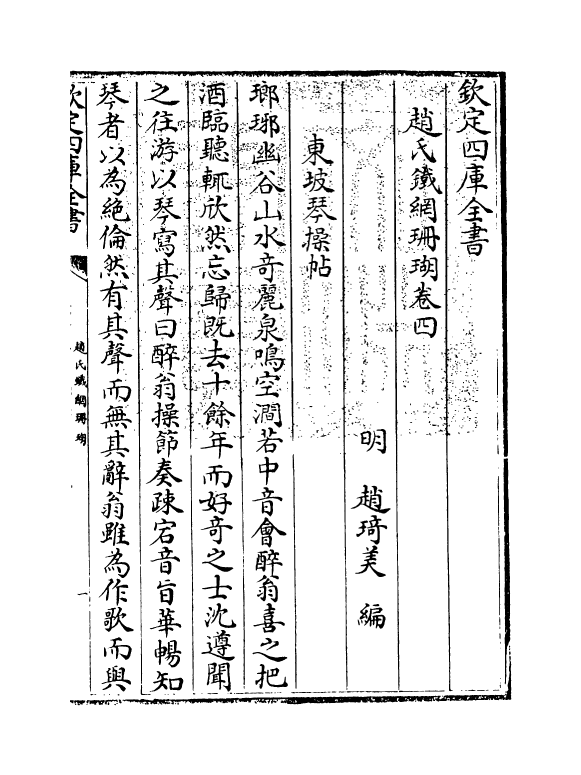 欽定四庫全書
趙氏鐵網珊瑚卷四
明 趙琦美 編
東坡琴操帖
瑯琊幽谷山水奇麗泉鳴空澗若中音會醉翁喜之把
酒臨聽輒欣然忘歸既去十餘年而好奇之士沈遵聞
之往游以琴寫其聲曰醉翁操節奏疎宕音旨華暢知
琴者以為絶倫然有其聲而無其辭翁雖為作歌而與
欽定四庫全書
趙氏鐵網珊瑚
一